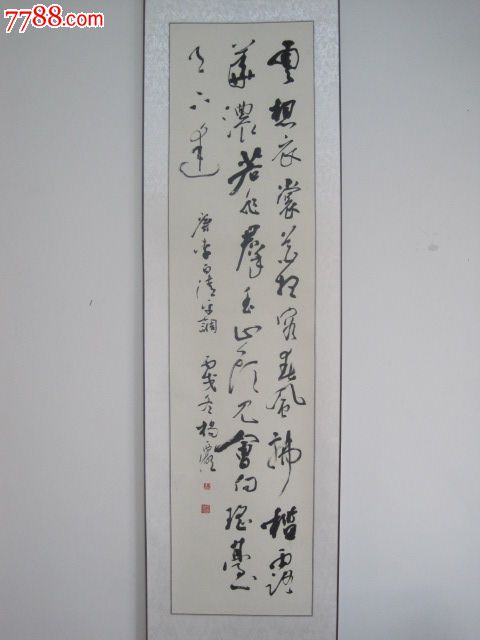 7788.com
雲想衣裳花想容春風拂檻露
華濃若非羣玉山頭見會向瑤臺
月下逢
唐李白清平調 丙戌冬楊